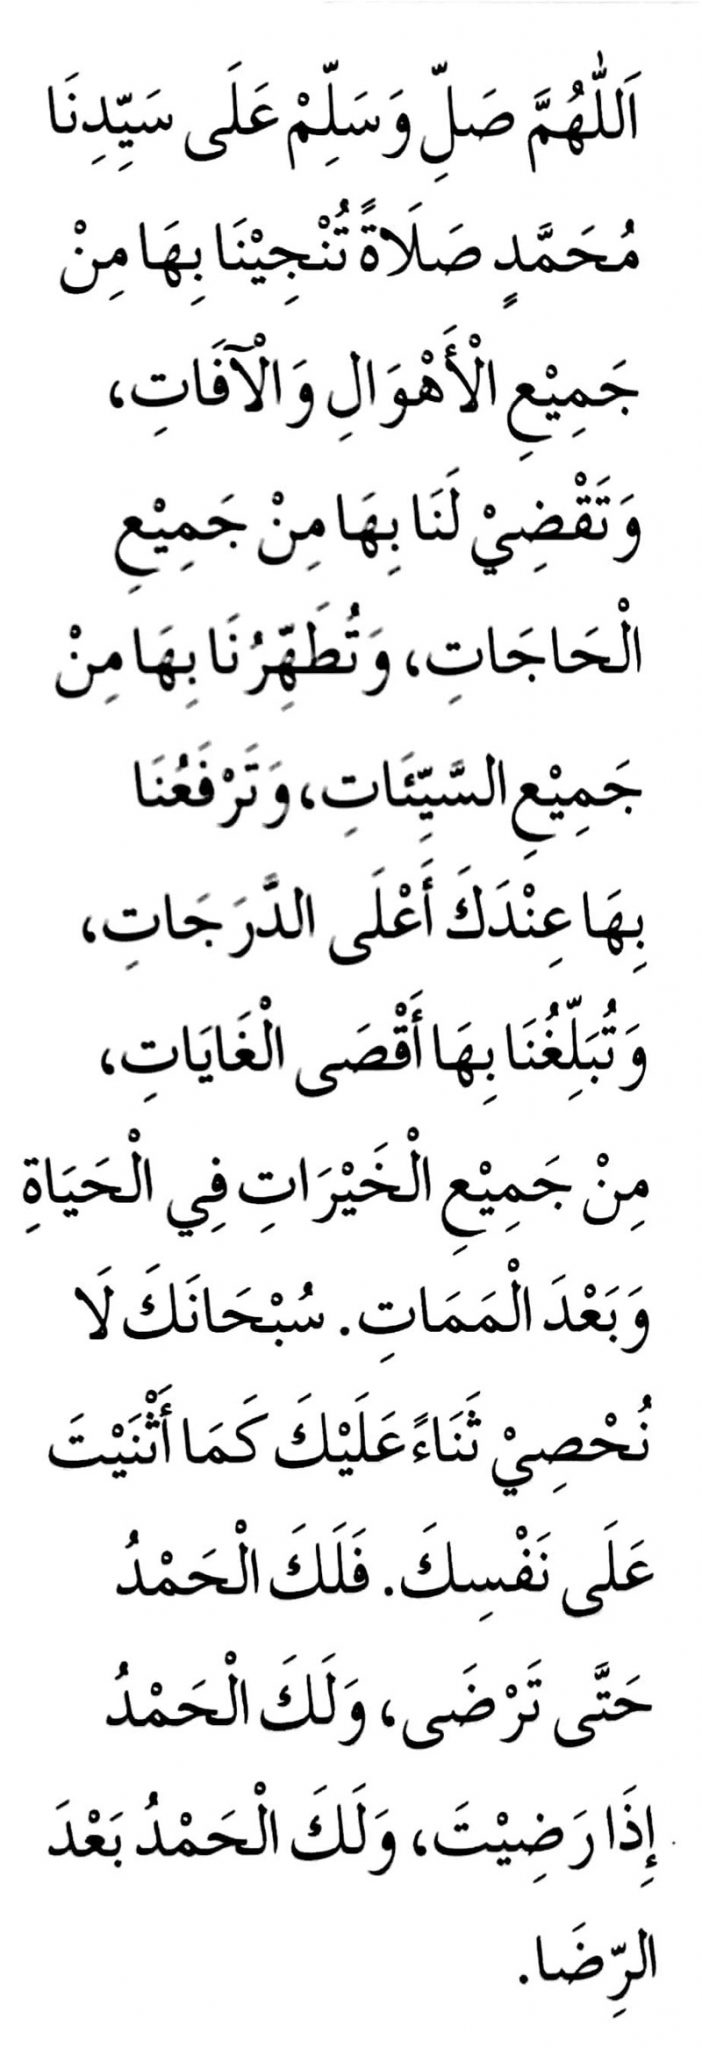 اَللّٰهُمَّ صَلِّ وَسَلِّمْ عَلَى سَيِّدِنَا
مُحَمَّدٍ صَلَاةً تُنْجِيْنَا بِهَا مِنْ
جَمِيْعِ الْأَهْوَالِ وَالْآفَاتِ،
وَتَقْضِيْ لَنَا بِهَا مِنْ جَمِيْعِ
الْحَاجَاتِ، وَتُطَهِّرُنَا بِهَا مِنْ
جَمِيْعِ السَّيِّئَاتِ، وَتَرْفَعُنَا
بِهَا عِنْدَكَ أَعْلَى الدَّرَجَاتِ،
وَتُبَلِّغُنَا بِهَا أَقْصَى الْغَايَاتِ،
مِنْ جَمِيْعِ الْخَيْرَاتِ فِي الْحَيَاةِ
وَبَعْدَ الْمَمَاتِ. سُبْحَانَكَ لَا
نُحْصِيْ ثَنَاءً عَلَيْكَ كَمَا أَثْنَيْتَ
عَلَى نَفْسِكَ. فَلَكَ الْحَمْدُ
حَتَّى تَرْضَى، وَلَكَ الْحَمْدُ
إِذَا رَضِيْتَ، وَلَكَ الْحَمْدُ بَعْدَ
الرِّضَا.